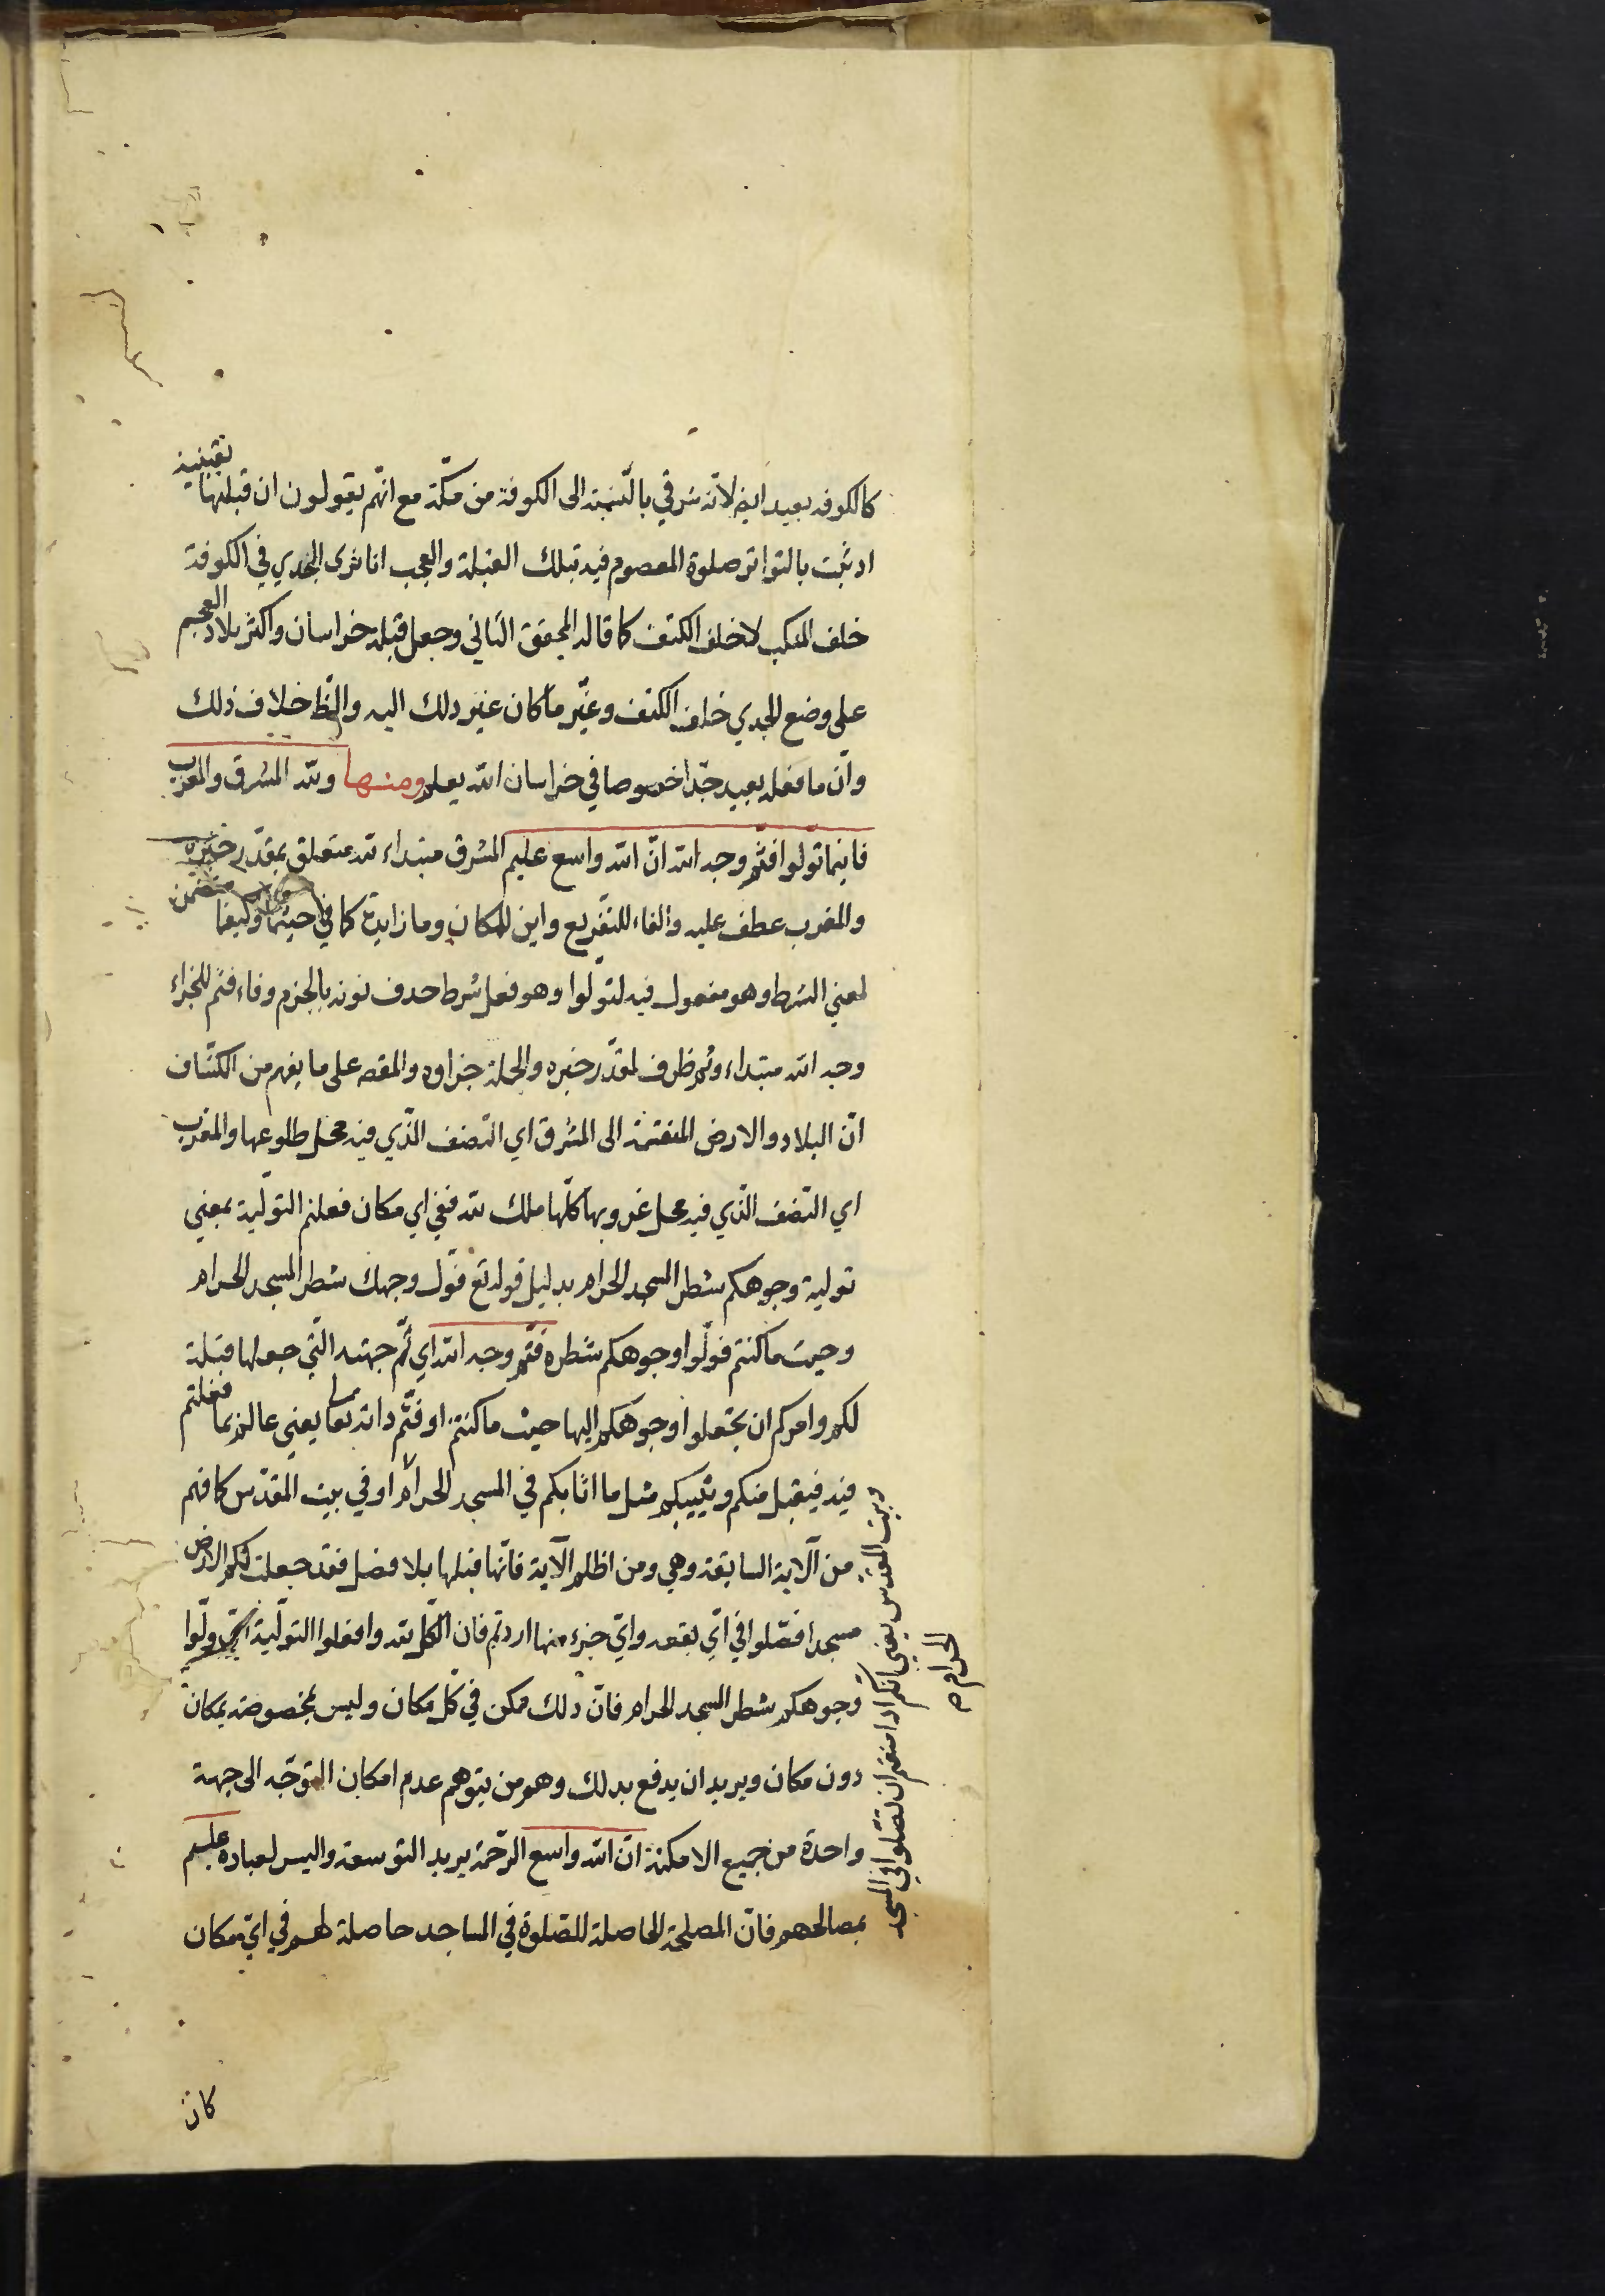 كالكوفه بعيد ايض لانه شرقي بالنسبة الى الكوفة من مكّة مع انّهم يقولون ان قبلتها يقينية
اذ ثبت بالتواتر صلوة المعصوم فيه بتلك القبلة والعجب انا نرى الجدي في الكوفة
خلف المنكب لا خلف الكتف كما قاله المحقق الثاني وجعل قبلة خراسان واكثر بلاد العجم
على وضع الجدي خلف الكتف وغيّر ما كان غير ذلك اليه والظ خلاف ذلك
وانّ ما فعله بعيد جدّا خصوصا في خراسان الله يعلم ومنها ولله المشرق والمغرب
فاينما تولوا فثمّ وجه الله انّ الله واسع عليم المشرق مبتداء لله متعلق بمقدّر خبره
والمغرب عطف عليه والفاء للتفريع واين للمكان وما زايدة كما في حيثما وكيفما متضمن
لمعني الشرط وهو مفعول فيه لتولّوا وهو فعل شرط حذف نونه بالجزم وفاء فثم للجزاء
وجه الله مبتداء وثم ظرف لمقدّر خبره والجملة جزاوه والمقصه على ما يفهم من الكشّاف
انّ البلاد والارض المنقسمة الى المشرق اي النصف الّذي فيه محل طلوعها والمغرب
اي النّصف الّذي فيه محل غروبها كلّها ملك لله ففي اي مكان فعلتم التولّية بمعني
تولية وجوهكم شطر المسجد الحرام بدليل قوله تع فوّل وجهك شطر المسجد الحرام
وحيث ما كنتم فولّوا وجوهكم شطره فثم وجه الله اي ثّم جهته الّتي جعلها قبلة
لكم وامركم ان تجعلوا وجوهكم اليها حيث ما كنتم او فثّم ذاته تعا يعني عالم بما فعلتم
فيه فيقبل منكم ويثيبكم مثل ما اثابكم في المسجد الحرام او في بيت المقدّس كما فهم
من الآية السابقة وهي ومن اظلم الآية فانّها قبلها بلا فصل فقد جعلت لكم الارض
مسجدا فصّلوا في اّي بقعه وايّ جزء منها اردتم فان الكّل لله وافعلوا التولّية ولّوا
وجوهكم شطر المسجد الحرام فانّ ذلك ممكن في كّل مكان وليس بمخصوصة بمكان
دون مكان ويريد ان يدفع بذلك وهو من يتوهم عدم امكان التوجّه الى جهة
واحدة من جميع الامكنة انّ الله واسع الرّحمة يريد التوسعة واليسر لعباده عليم
بمصالحهم فانّ المصلحة الحاصلة للصّلوة في المساجد حاصلة لهم في ايّ مكان
وبيت المقدس يعني انكم اذا منعتم ان تصّلوا في المسجد
الحرام
كان